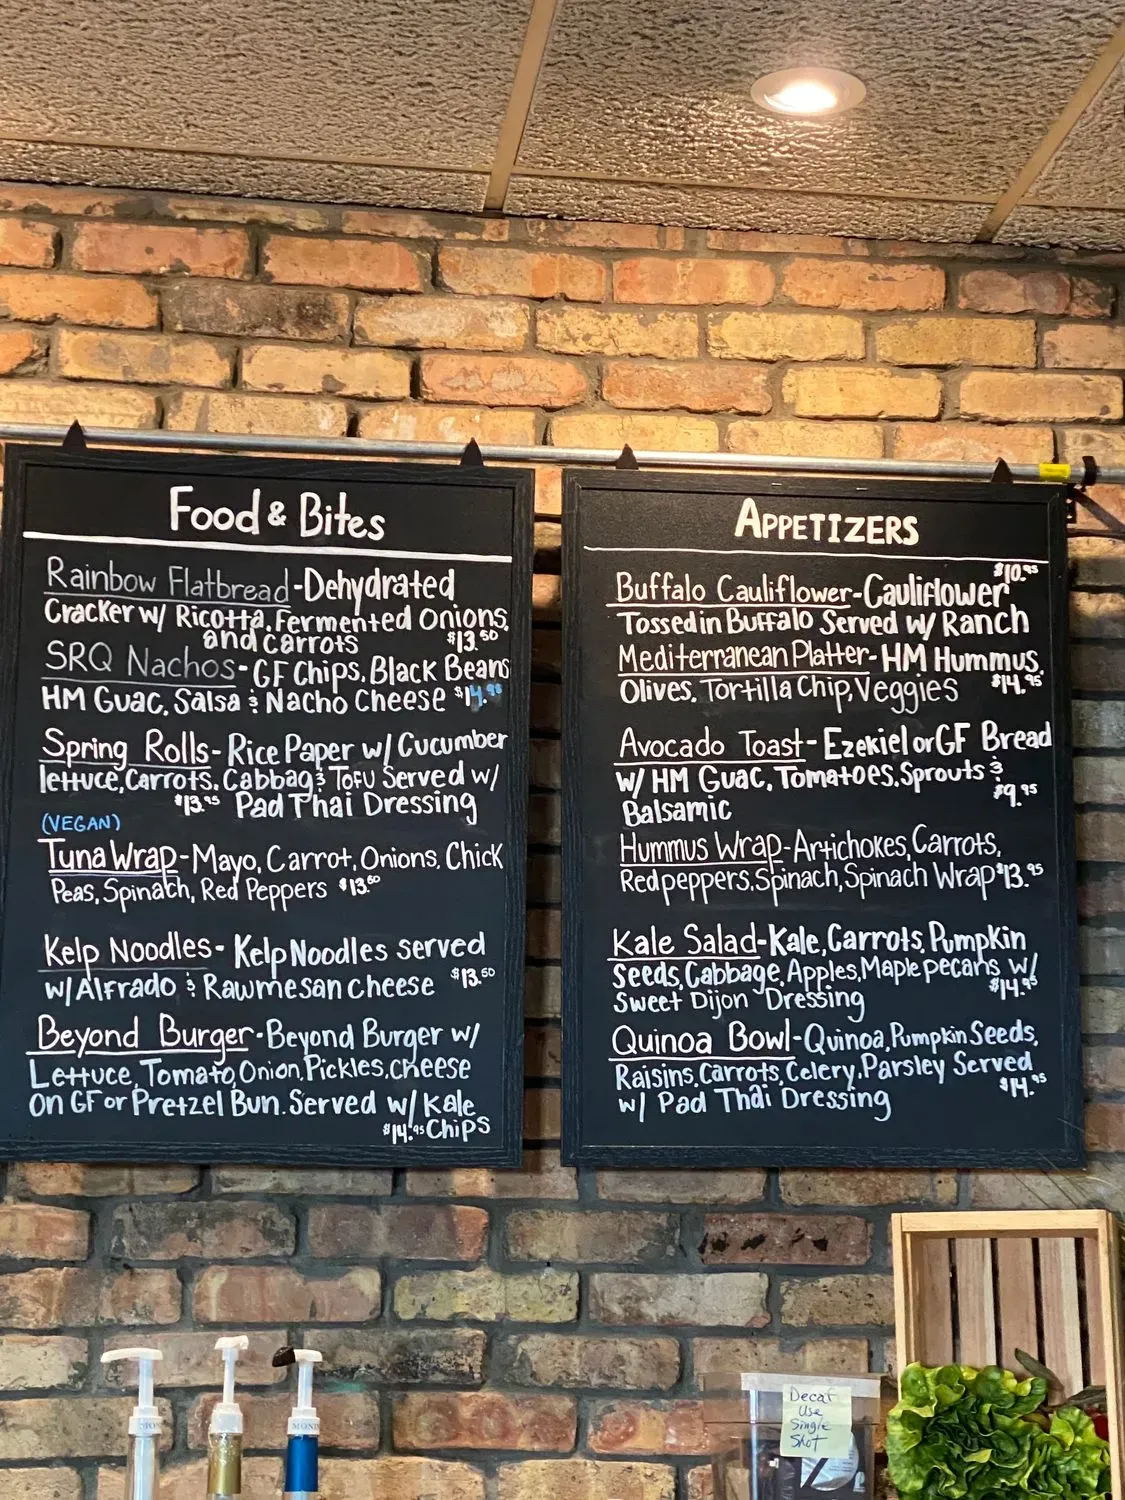 Food & Bites
Rainbow Flatbread - Dehydrated
Cracker w/ Ricotta, Fermented Onions,
and Carrots $13.50
SRQ Nachos - GF Chips, Black Beans
HM Guac, Salsa & Nacho Cheese $14.95
Spring Rolls - Rice Paper w/ Cucumber
lettuce, Carrots, Cabbag & Tofu Served w/
$13.95 Pad Thai Dressing
(VEGAN)
Tuna Wrap - Mayo, Carrot, Onions, Chick
Peas, Spinach, Red Peppers $13.50
Kelp Noodles - Kelp Noodles served
w/ Alfrado & Rawmesan cheese $13.50
Beyond Burger - Beyond Burger w/
Lettuce, Tomato, Onion, Pickles, cheese
on GF or Pretzel Bun. Served w/ Kale
$14.95 Chips
APPETIZERS
$10.95
Buffalo Cauliflower - Cauliflower
Tossed in Buffalo Served w/ Ranch
Mediterranean Platter - HM Hummus,
Olives, Tortilla Chip, Veggies $14.95
Avocado Toast - Ezekiel or GF Bread
w/ HM Guac, Tomatoes, Sprouts &
Balsamic $9.95
Hummus Wrap - Artichokes, Carrots,
Red peppers, Spinach, Spinach Wrap $13.95
Kale Salad - Kale, Carrots, Pumpkin
Seeds, Cabbage, Apples, Maple pecans w/
Sweet Dijon Dressing $14.95
Quinoa Bowl - Quinoa, Pumpkin Seeds,
Raisins, Carrots, Celery, Parsley Served
w/ Pad Thai Dressing $14.95
Decaf
Use
Single
Shot